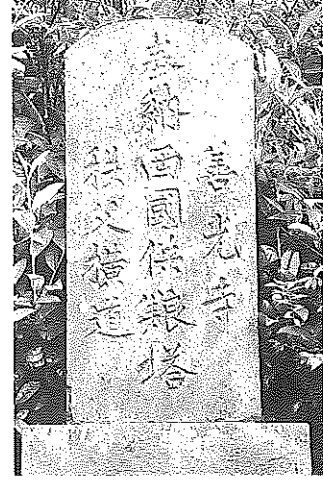 善光寺
奉納西國供粮塔
秩父横道